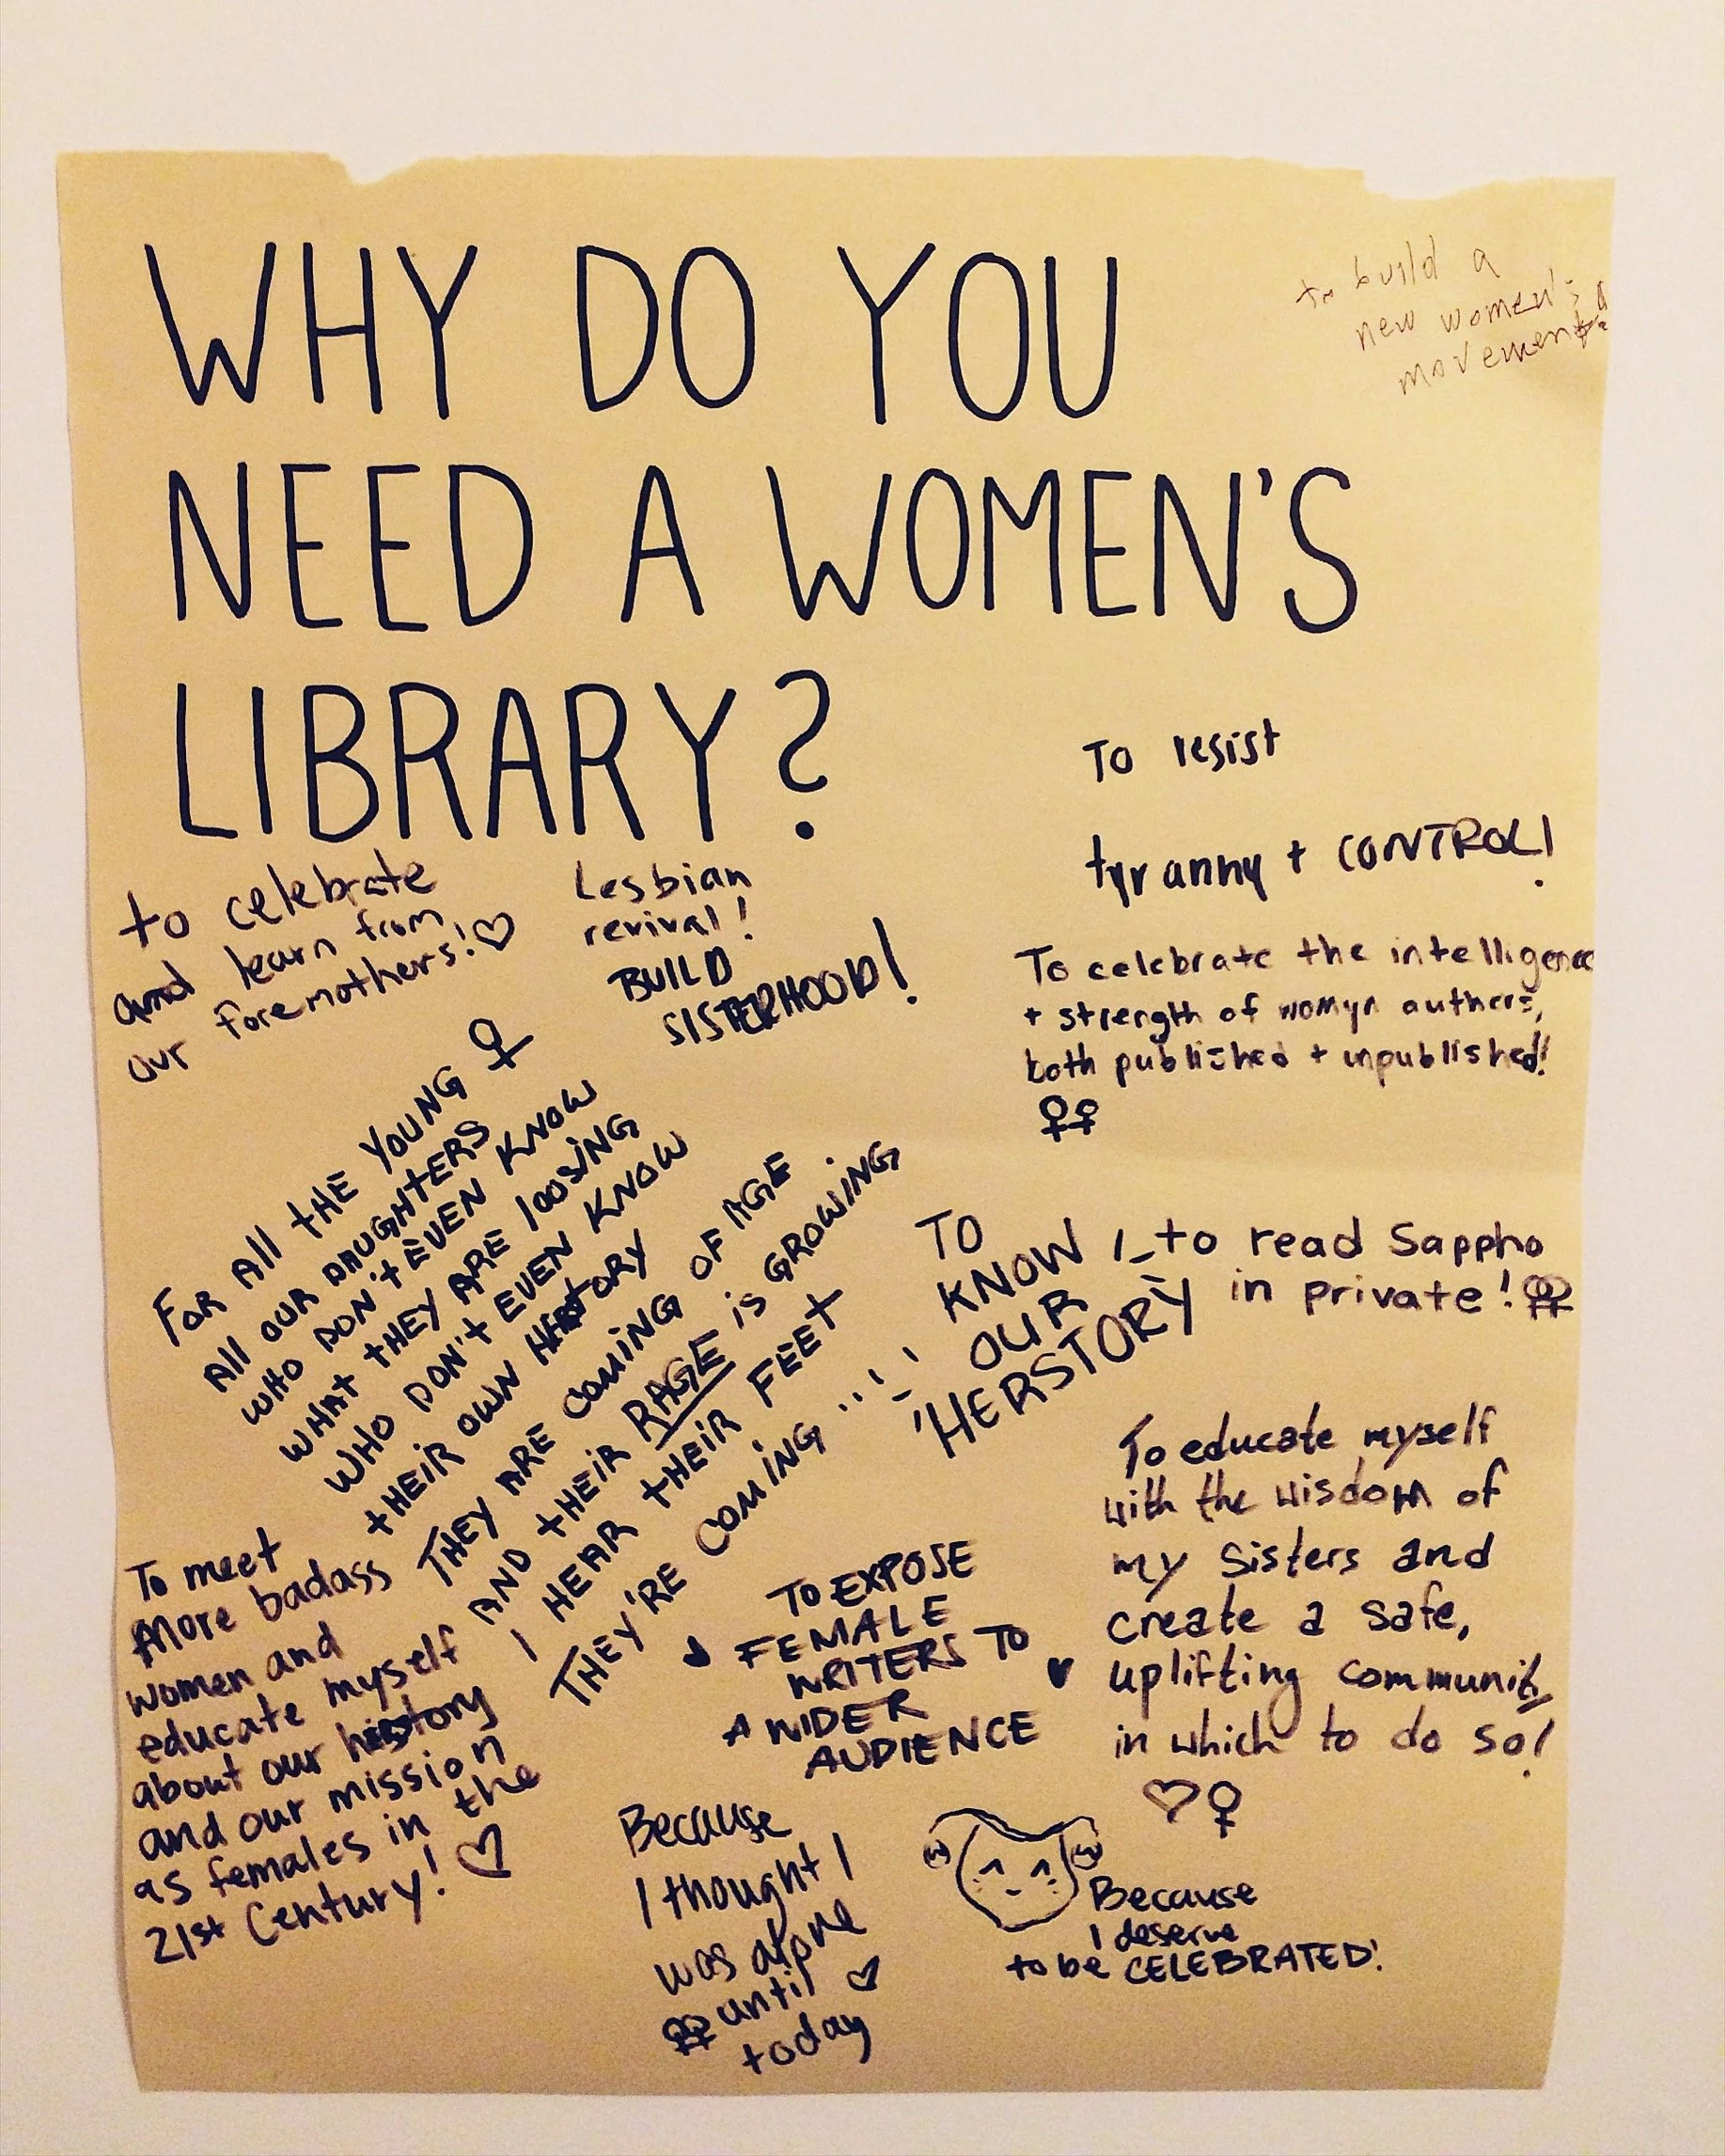 WHY DO YOU
NEED A WOMEN'S
LIBRARY?
to build a
new women's
movement
To resist
tyranny + CONTROL!
to celebrate
and learn from
our foremothers! ♡
Lesbian
revival!
BUILD
SISTERHOOD!
To celebrate the intelligence
+ strength of womyn authors,
both published + unpublished!
♀♀
FOR All tHE YOUNG ♀
All OUR DAUGHTERS
WHO DON't EVEN KNOW
WHAT tHEY ARE lOOSING
WHO DON't EVEN KNOW
tHEIR OWN HERstORY
THEY ARE COMING OF AGE.
AND tHEiR RAGE iS GROWiNG
I HEAR tHEiR FEEt
THEY'RE COMiNG
TO
KNOW
OUR
'HERSTORY'
to read Sappho
in private! ♀♀
To educate myself
with the wisdom of
my sisters and
create a safe,
uplifting community
in which to do so!
♡♀
To meet
more badass
women and
educate myself
about our herstory
and our mission
as females in the
21st Century! ♡
TO EXPOSE
FEMALE
WRITERS TO
A WIDER
AUDIENCE
Because
I thought I
was alone
♀♀ until ♡
today
Because
I deserve
to be CELEBRATED!